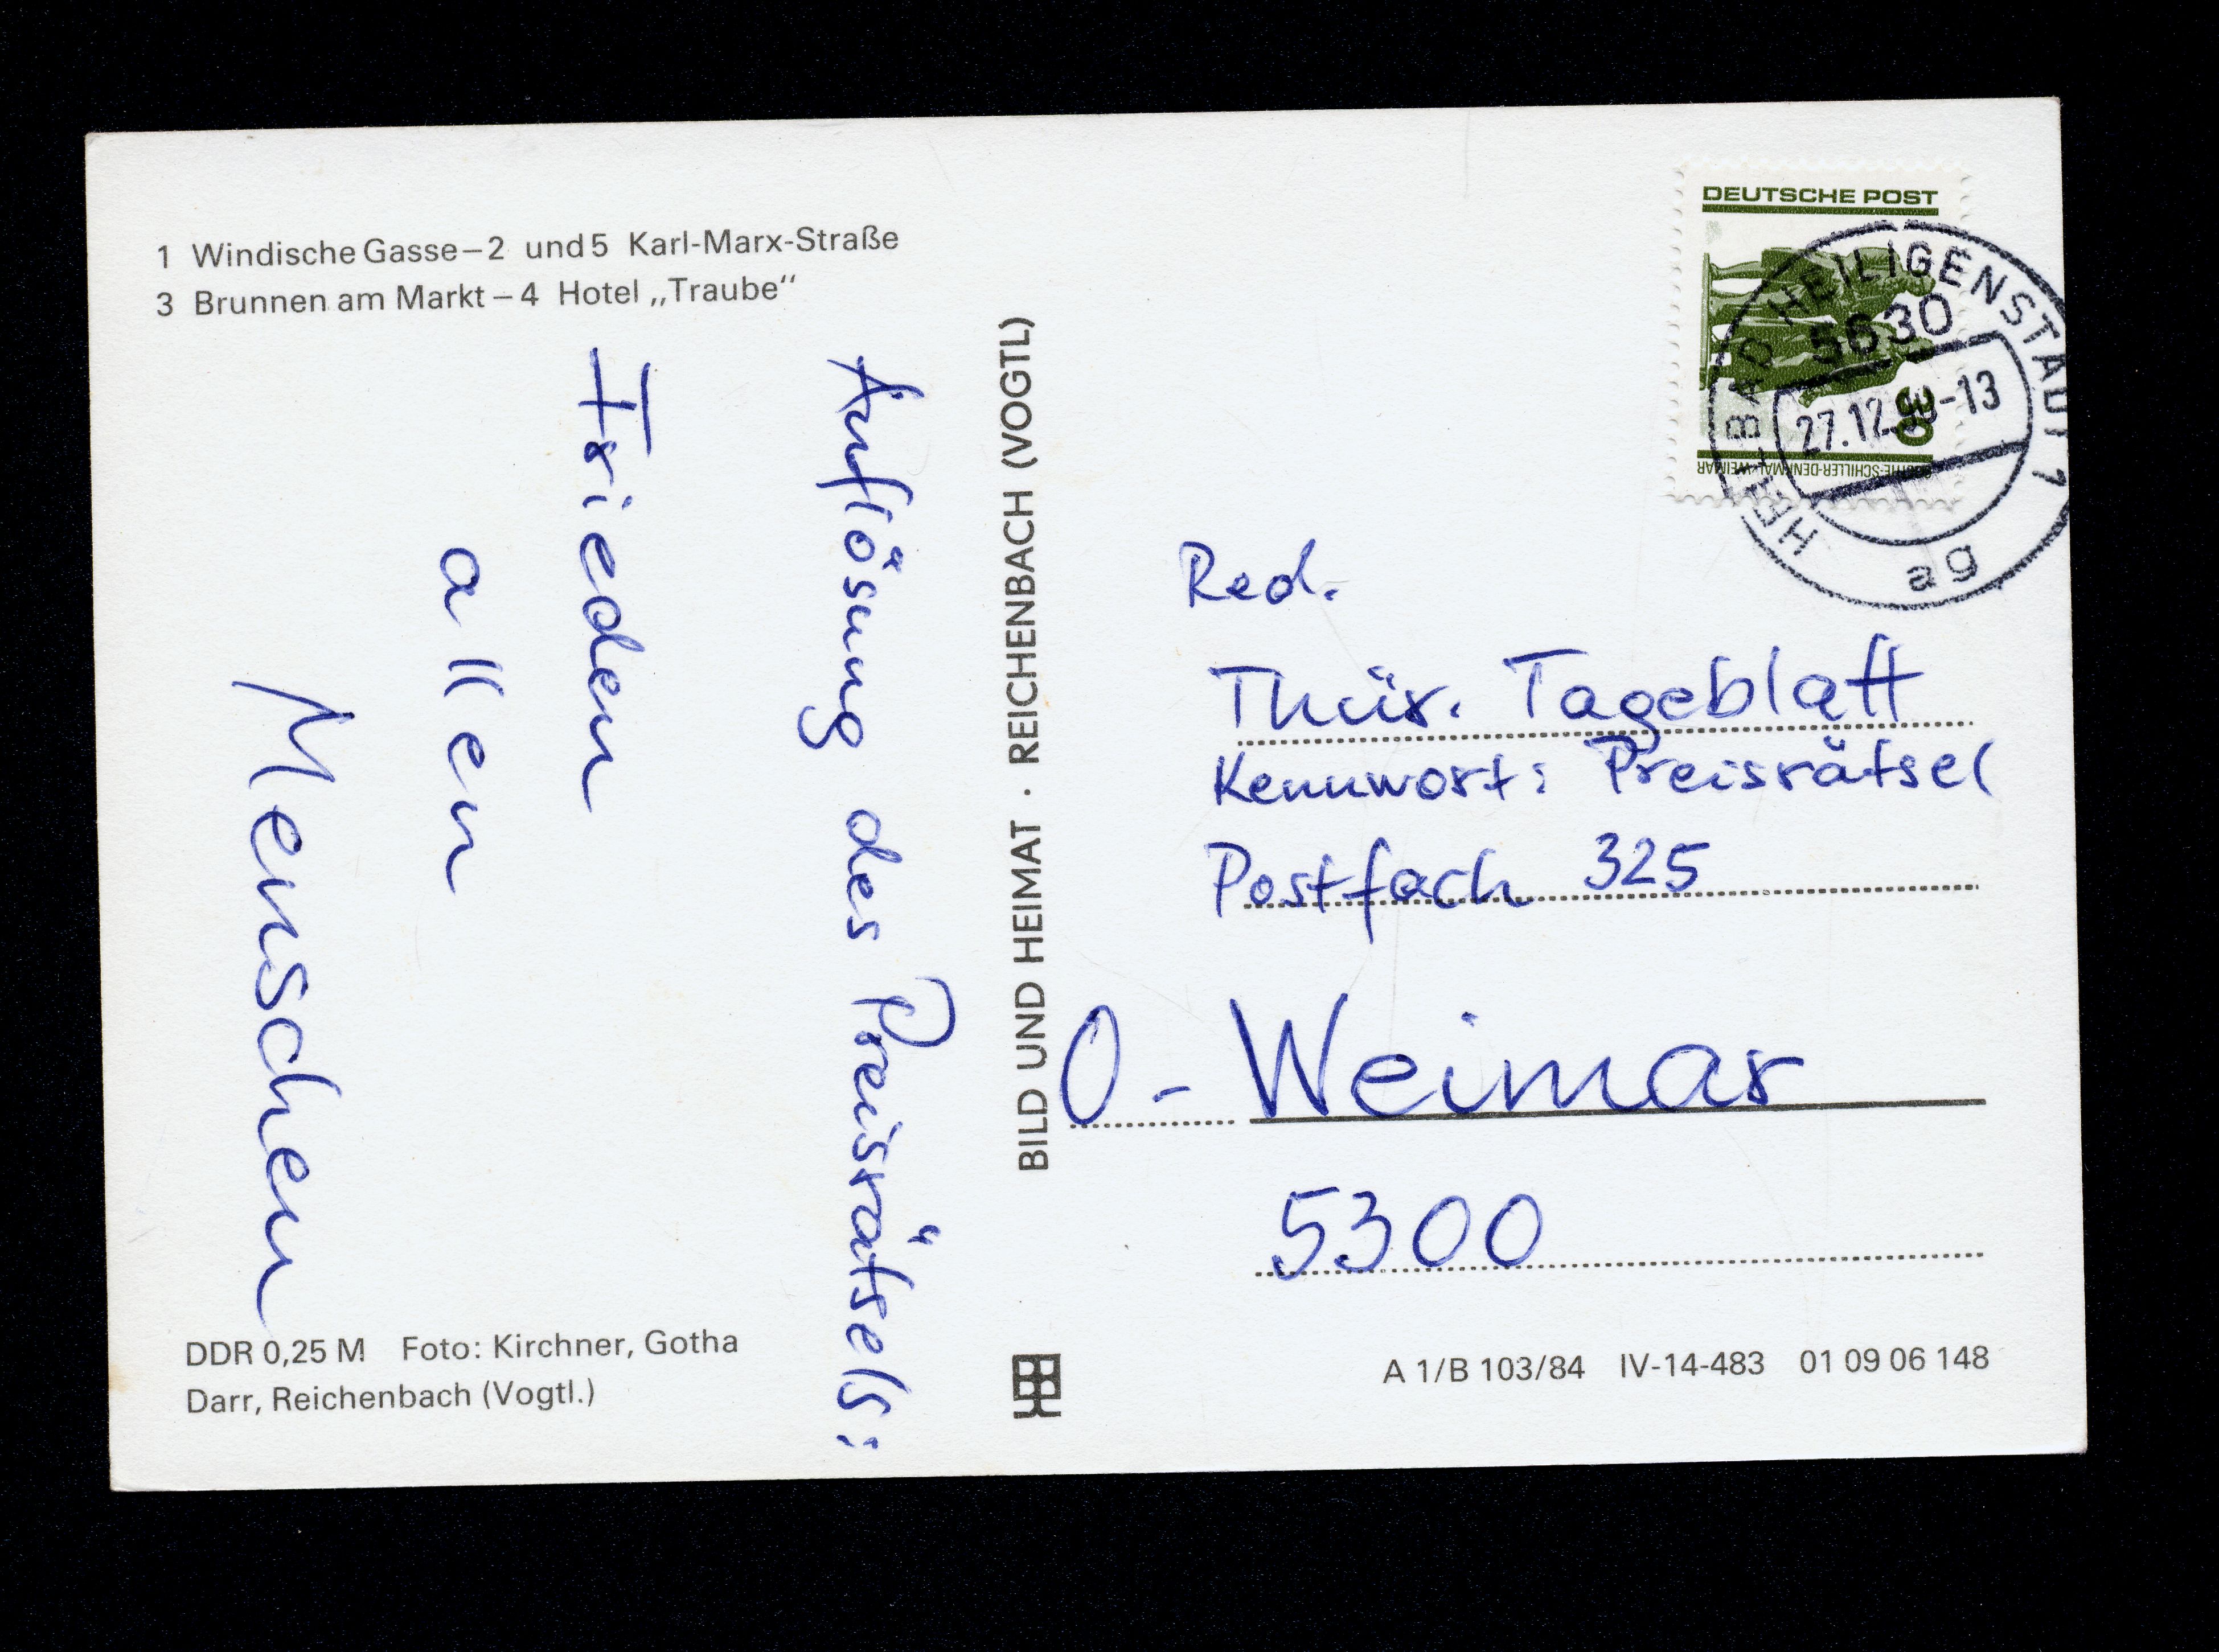 1 Windische Gasse – 2 und 5 Karl-Marx-Straße
3 Brunnen am Markt – 4 Hotel „Traube“
Auflösung des Preisrätsels:
Frieden
allen
Menschen
DDR 0,25 M Foto: Kirchner, Gotha
Darr, Reichenbach (Vogtl.)
BILD UND HEIMAT · REICHENBACH (VOGTL)
DEUTSCHE POST
30
GOETHE-SCHILLER-DENKMAL · WEIMAR
HEILBAD HEILIGENSTADT 1
5630
27.12.90-13
ag
Red.
Thür. Tageblatt
Kennwort: Preisrätsel
Postfach 325
O - Weimar
5300
A 1/B 103/84 IV-14-483 01 09 06 148